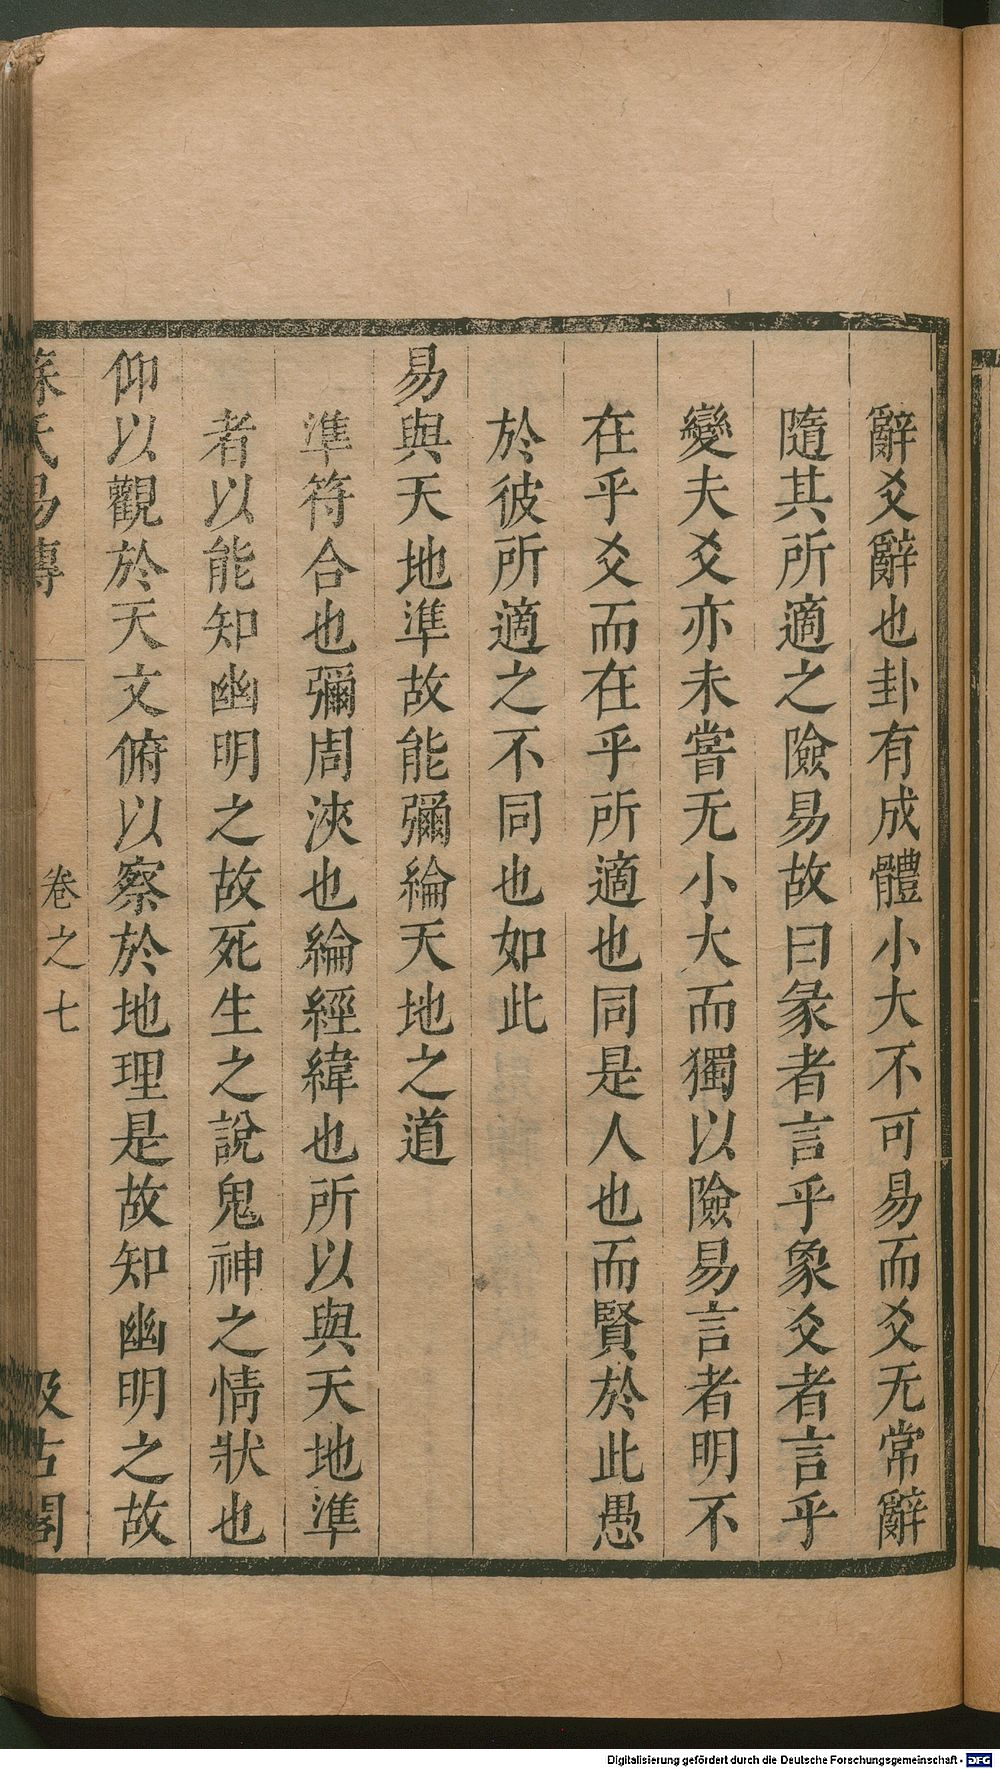 辭爻辭也卦有成體小大不可易而爻无常辭
隨其所適之險易故曰彖者言乎象爻者言乎
變夫爻亦未嘗无小大而獨以險易言者明不
在乎爻而在乎所適也同是人也而賢於此愚
於彼所適之不同也如此
易與天地準故能彌綸天地之道
準符合也彌周浹也綸經緯也所以與天地準
者以能知幽明之故死生之說鬼神之情狀也
仰以觀於天文俯以察於地理是故知幽明之故
蘇氏易傳
卷之七
汲古閣
Digitalisierung gefördert durch die Deutsche Forschungsgemeinschaft - DFG